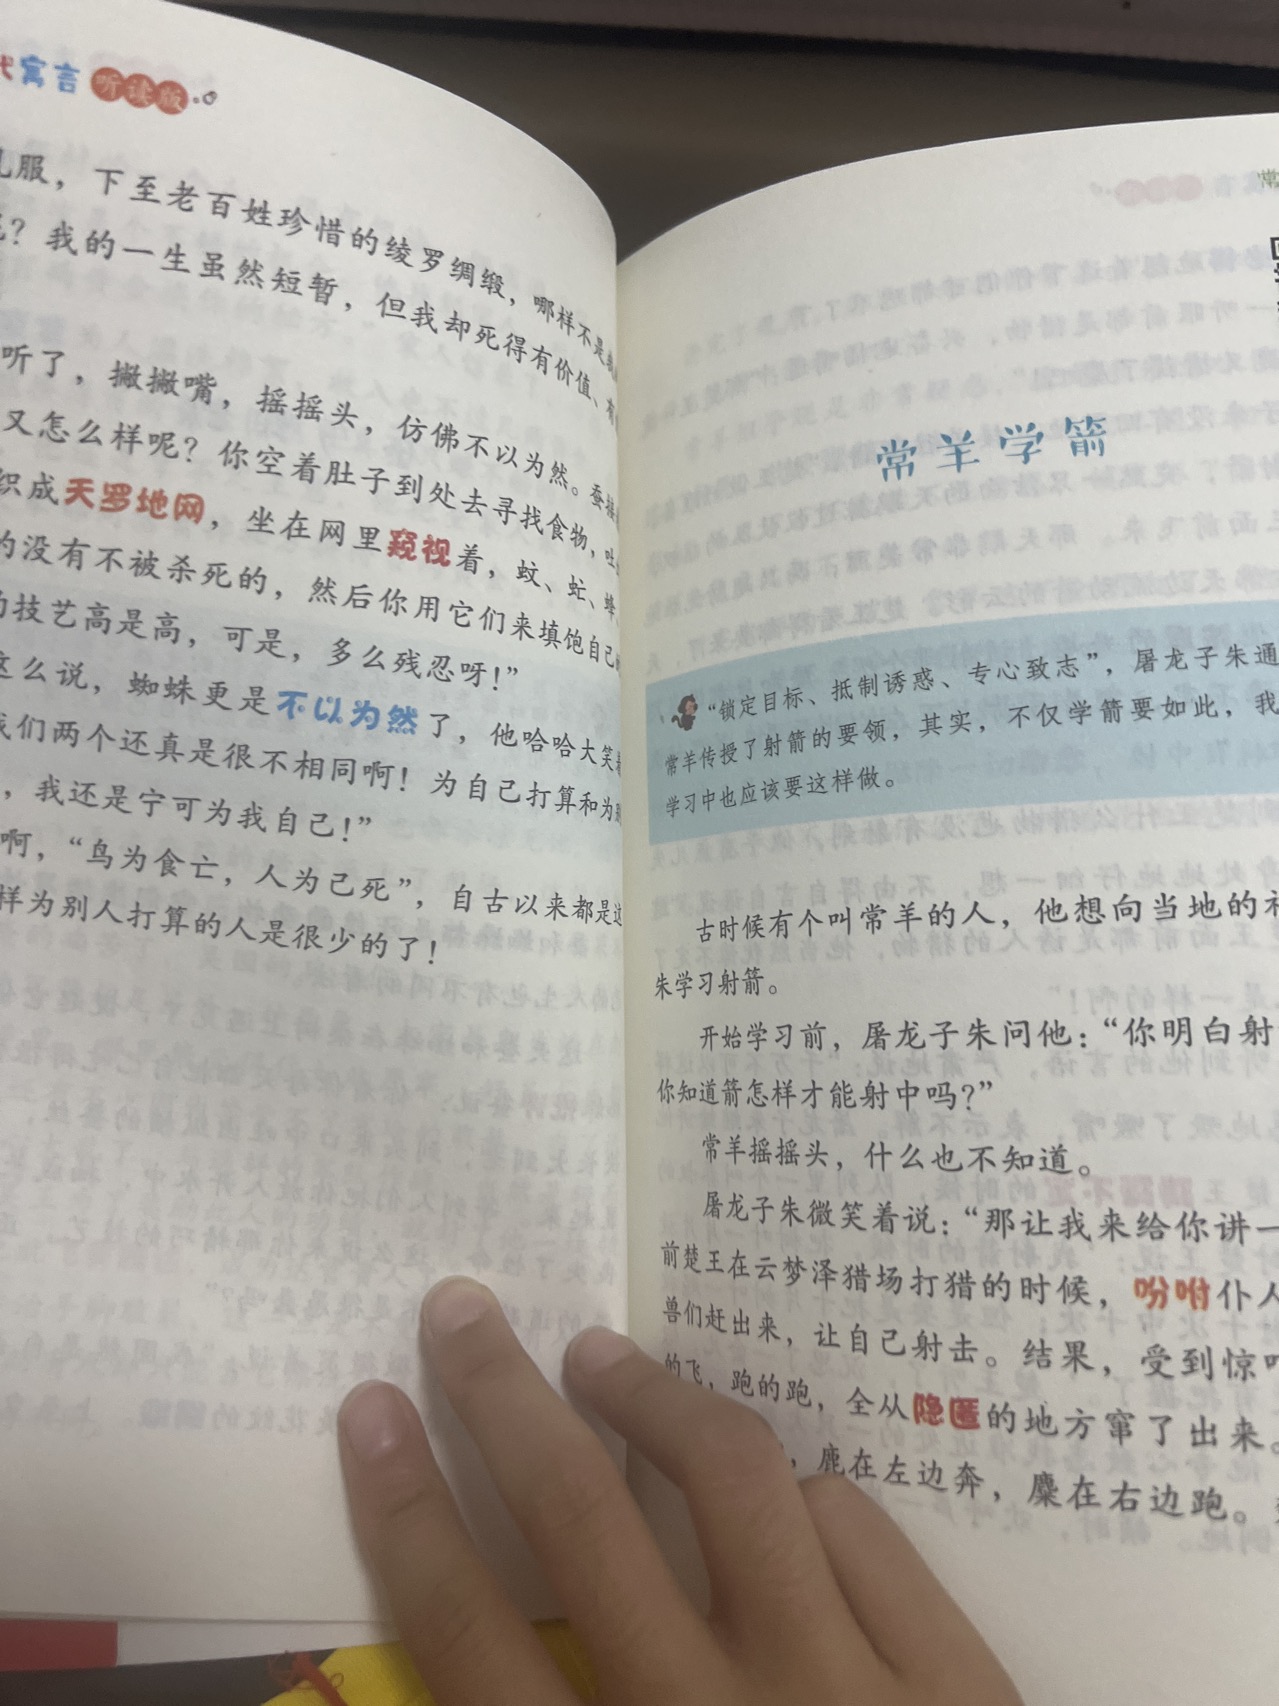 寓言 听读版
服，下至老百姓珍惜的绫罗绸缎，哪样不是
？我的一生虽然短暂，但我却死得有价值、有
听了，撇撇嘴，摇摇头，仿佛不以为然。蚕
又怎么样呢？你空着肚子到处去寻找食物，吐
织成天罗地网，坐在网里窥视着，蚊、虻、蜂、
的没有不被杀死的，然后你用它们来填饱自己
技艺高是高，可是，多么残忍呀！”
这么说，蜘蛛更是不以为然了，他哈哈大笑
我们两个还真是很不相同啊！为自己打算和为
，我还是宁可为我自己！”
啊，“鸟为食亡，人为己死”，自古以来都是
样为别人打算的人是很少的了！
常羊学箭
“锁定目标、抵制诱惑、专心致志”，屠龙子朱通
常羊传授了射箭的要领，其实，不仅学箭要如此，我
学习中也应该要这样做。
古时候有个叫常羊的人，他想向当地的
朱学习射箭。
开始学习前，屠龙子朱问他：“你明白射
你知道箭怎样才能射中吗？”
常羊摇摇头，什么也不知道。
屠龙子朱微笑着说：“那让我来给你讲一
前楚王在云梦泽猎场打猎的时候，吩咐仆人
兽们赶出来，让自己射击。结果，受到惊吓
的飞，跑的跑，全从隐匿的地方窜了出来。
，鹿在左边奔，麋在右边跑。